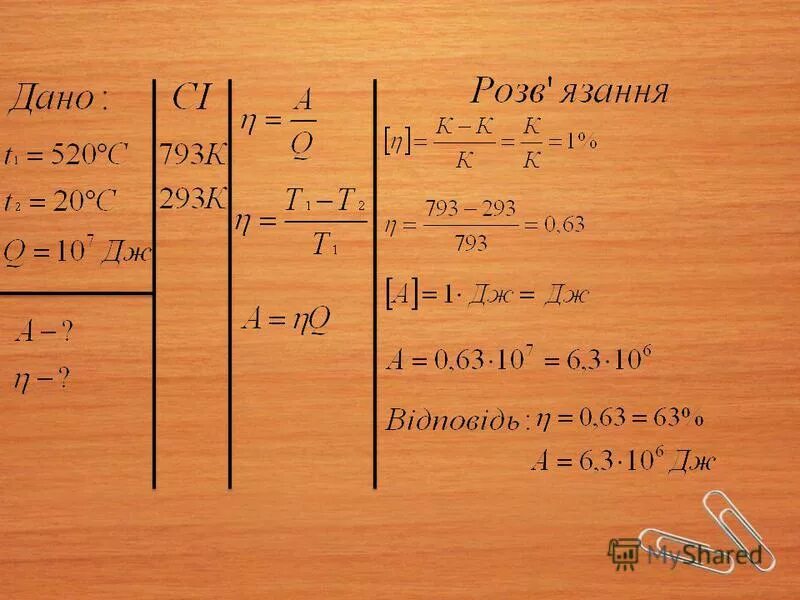 Дано :
t₁ = 520°C
t₂ = 20°C
Q = 10⁷ Дж
A – ?
η – ?
СІ
793К
293К
η = A / Q
η = (T₁ – T₂) / T₁
A = ηQ
Розв' язання
[η] = (К – К) / К = К / К = 1%
η = (793 – 293) / 793 = 0,63
[A] = 1 · Дж = Дж
A = 0,63 · 10⁷ = 6,3 · 10⁶
Відповідь : η = 0,63 = 63%
A = 6,3 · 10⁶ Дж
MyShared